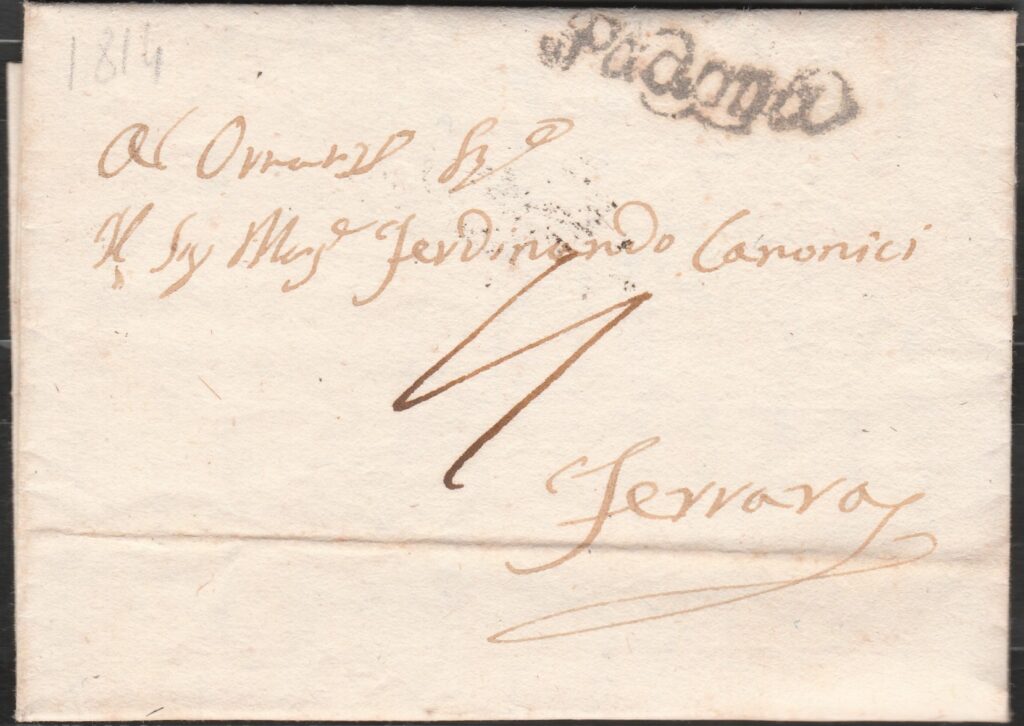 1814
Padova
Al Ornat Sig
Il Sig Mar Ferdinando Canonici
4
Ferrara